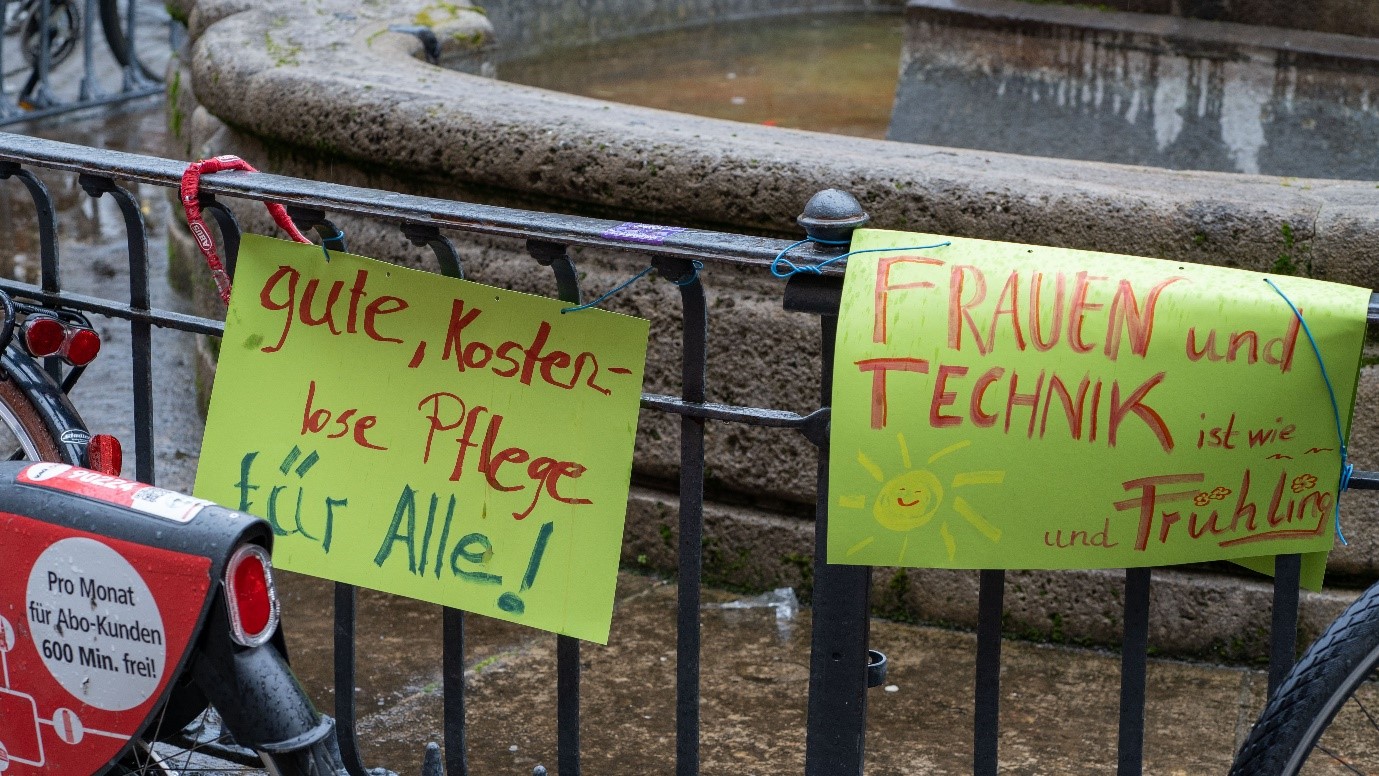 gute, Kosten-
lose Pflege
für Alle!
FRAUEN und
TECHNIK ist wie
und Frühling
ABUS
70224
Pro Monat
für Abo-Kunden
600 Min. frei!